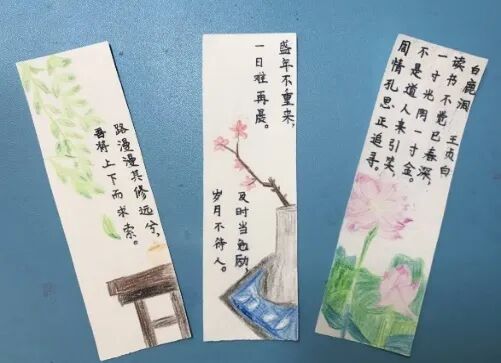 路漫漫其修远兮，
吾将上下而求索。
盛年不重来，
一日难再晨。
及时当勉励，
岁月不待人。
白鹿洞 王贞白
读书不觉已春深，
一寸光阴一寸金。
不是道人来引笑，
周情孔思正追寻。